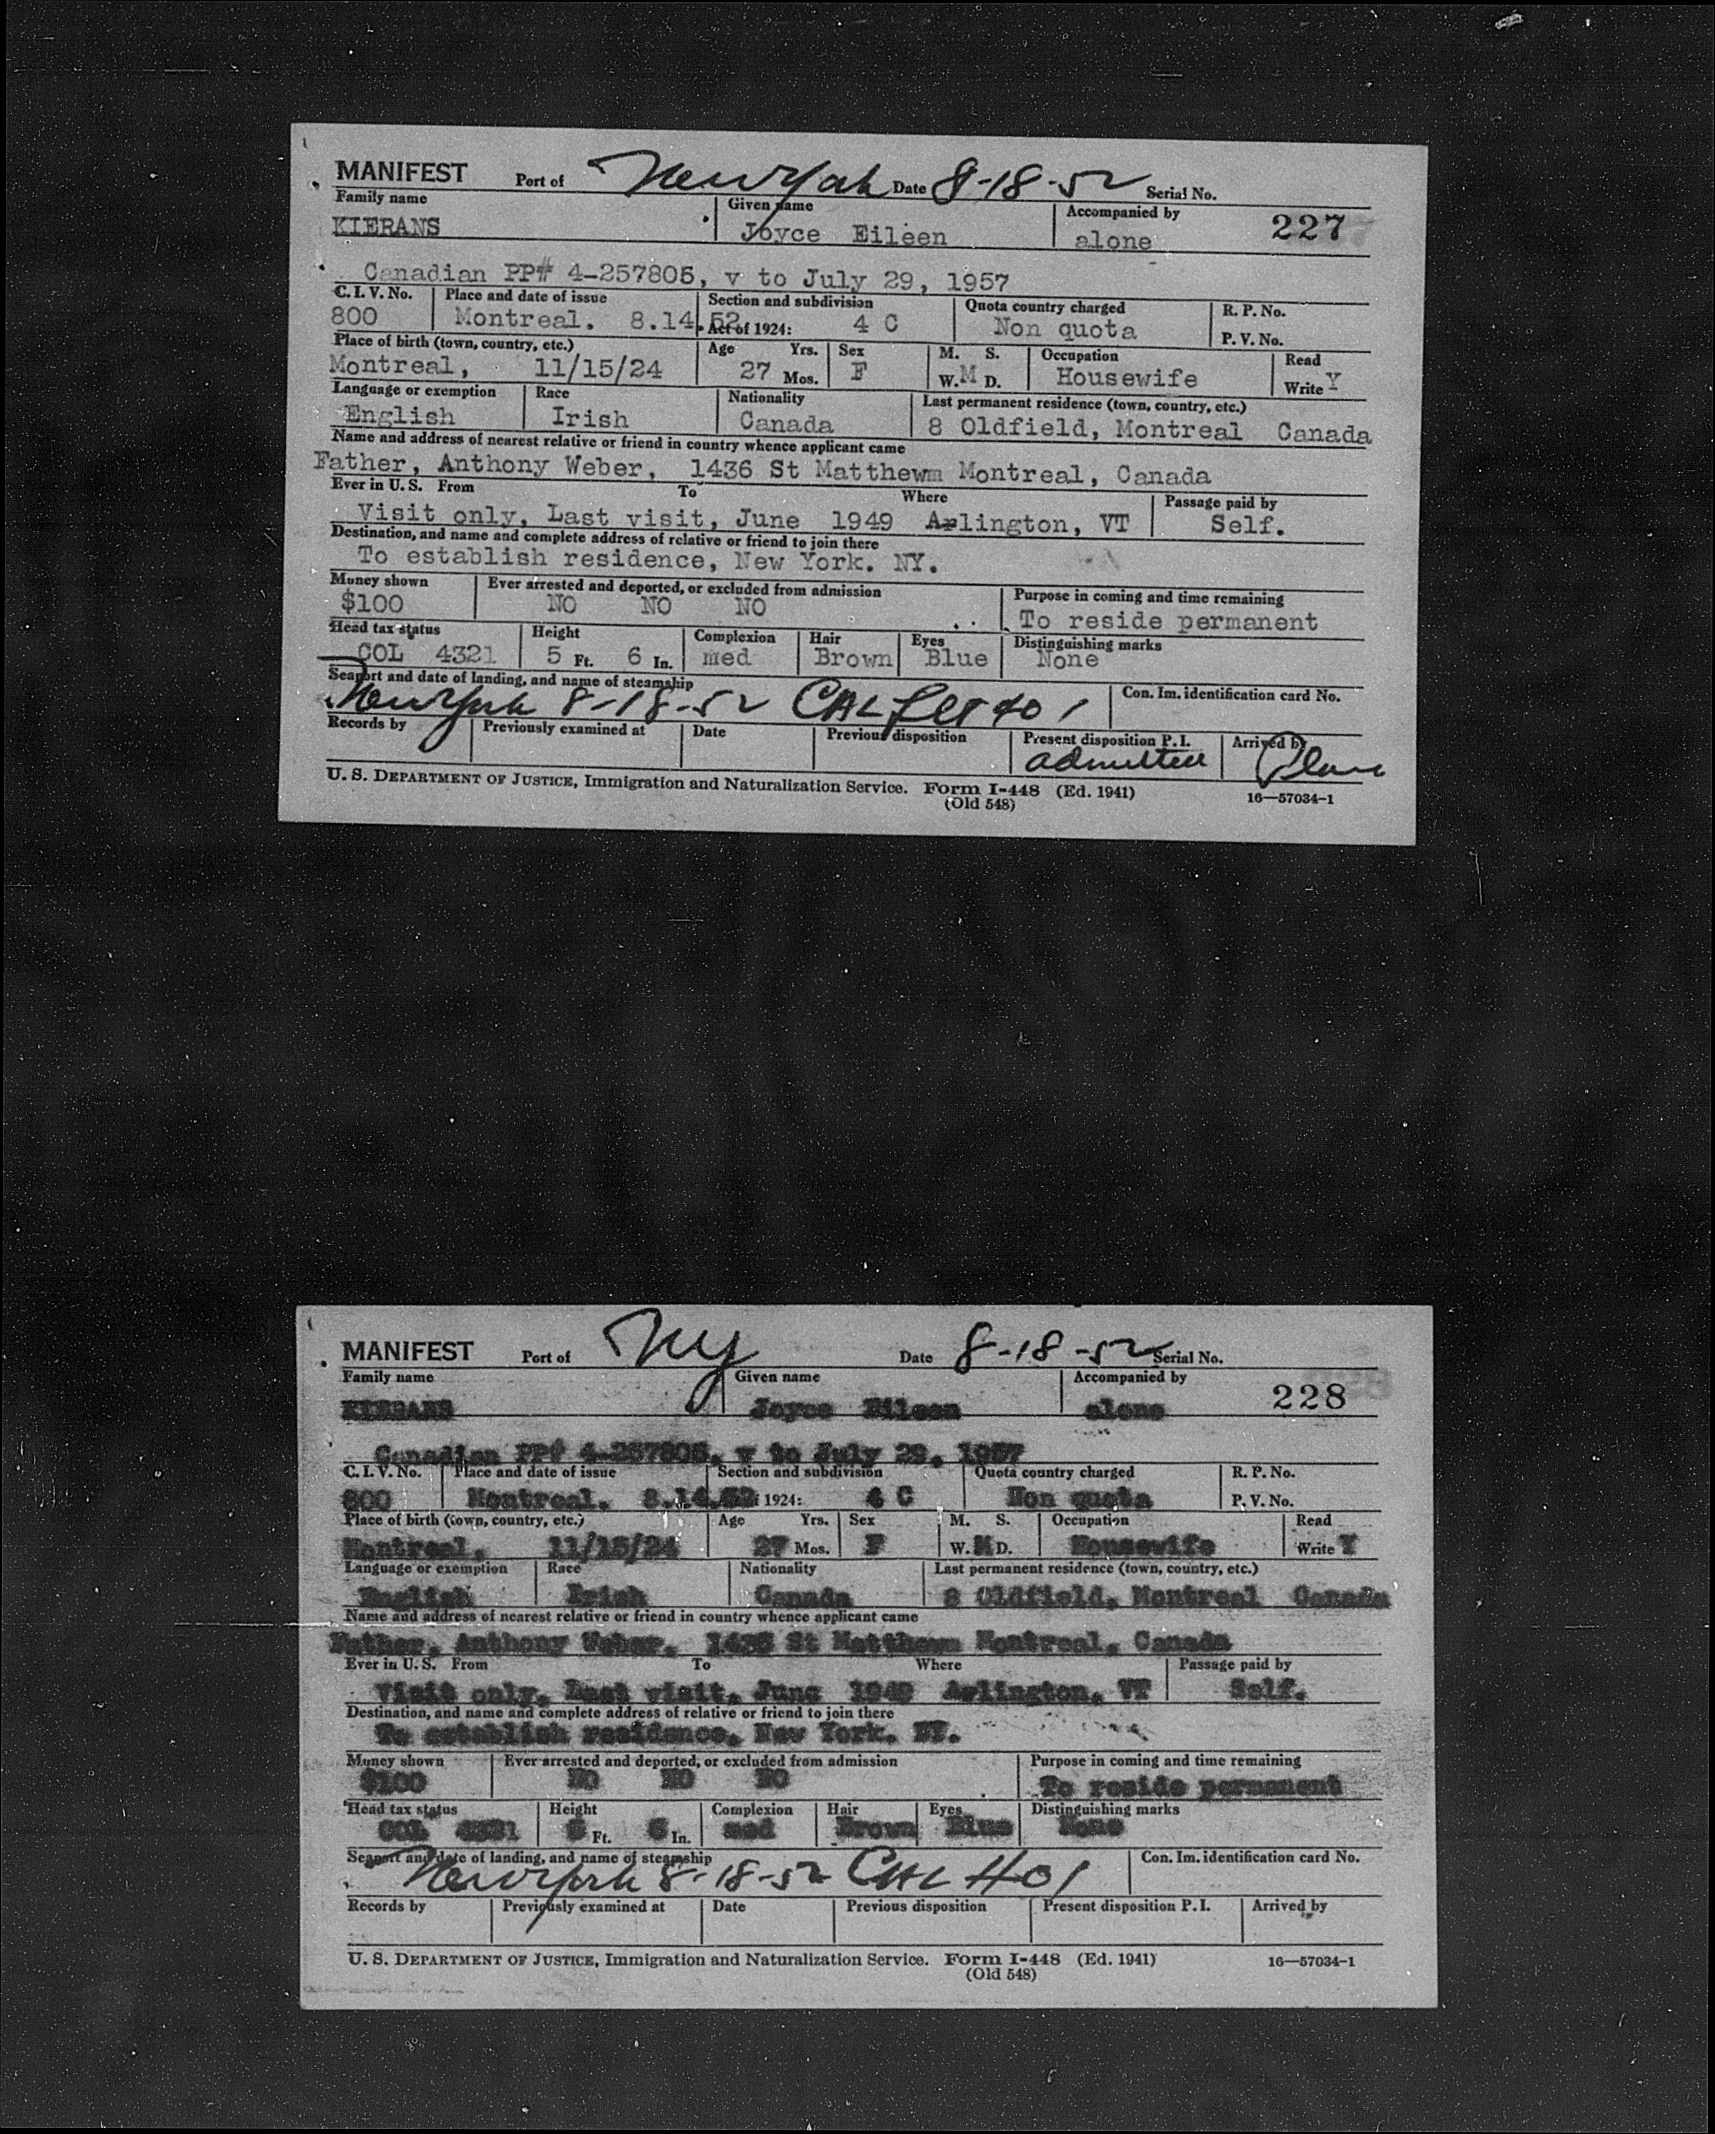 MANIFEST Port of New York Date 8-18-52 Serial No.
Family name Given name Accompanied by 227
KIERANS Joyce Eileen alone
Canadian PP# 4-257805, v to July 29, 1957
C. I. V. No. Place and date of issue Section and subdivision Quota country charged R. P. No.
800 Montreal. 8.14.52 Act of 1924: 4 C Non quota P. V. No.
Place of birth (town, country, etc.) Age Yrs. Sex M. S. Occupation Read
Montreal, 11/15/24 27 Mos. F W. M D. Housewife Write Y
Language or exemption Race Nationality Last permanent residence (town, country, etc.)
English Irish Canada 8 Oldfield, Montreal Canada
Name and address of nearest relative or friend in country whence applicant came
Father, Anthony Weber, 1436 St Matthewm Montreal, Canada
Ever in U. S. From To Where Passage paid by
Visit only, Last visit, June 1949 Arlington, VT Self.
Destination, and name and complete address of relative or friend to join there
To establish residence, New York. NY.
Money shown Ever arrested and deported, or excluded from admission Purpose in coming and time remaining
$100 NO NO NO To reside permanent
Head tax status Height Complexion Hair Eyes Distinguishing marks
COL 4321 5 Ft. 6 In. med Brown Blue None
Seaport and date of landing, and name of steamship Con. Im. identification card No.
New York 8-18-52 CAL 401
Records by Previously examined at Date Previous disposition Present disposition P. I. Arrived by
admitted
U. S. DEPARTMENT OF JUSTICE, Immigration and Naturalization Service. Form I-448 (Ed. 1941) 16—57034-1
(Old 548)
MANIFEST Port of NY Date 8-18-52 Serial No.
Family name Given name Accompanied by 228
KIERANS Joyce Eileen alone
Canadian PP# 4-257805, v to July 29, 1957
C. I. V. No. Place and date of issue Section and subdivision Quota country charged R. P. No.
800 Montreal. 8.14.52 1924: 4 C Non quota P. V. No.
Place of birth (town, country, etc.) Age Yrs. Sex M. S. Occupation Read
Montreal, 11/15/24 27 Mos. F W. M D. Housewife Write Y
Language or exemption Race Nationality Last permanent residence (town, country, etc.)
English Irish Canada 8 Oldfield, Montreal Canada
Name and address of nearest relative or friend in country whence applicant came
Father, Anthony Weber, 1436 St Matthewm Montreal, Canada
Ever in U. S. From To Where Passage paid by
Visit only, Last visit, June 1949 Arlington, VT Self.
Destination, and name and complete address of relative or friend to join there
To establish residence, New York. NY.
Money shown Ever arrested and deported, or excluded from admission Purpose in coming and time remaining
$100 NO NO NO To reside permanent
Head tax status Height Complexion Hair Eyes Distinguishing marks
COL 4321 5 Ft. 6 In. med Brown Blue None
Seaport and date of landing, and name of steamship Con. Im. identification card No.
New York 8-18-52 CAL 401
Records by Previously examined at Date Previous disposition Present disposition P. I. Arrived by
U. S. DEPARTMENT OF JUSTICE, Immigration and Naturalization Service. Form I-448 (Ed. 1941) 16—57034-1
(Old 548)